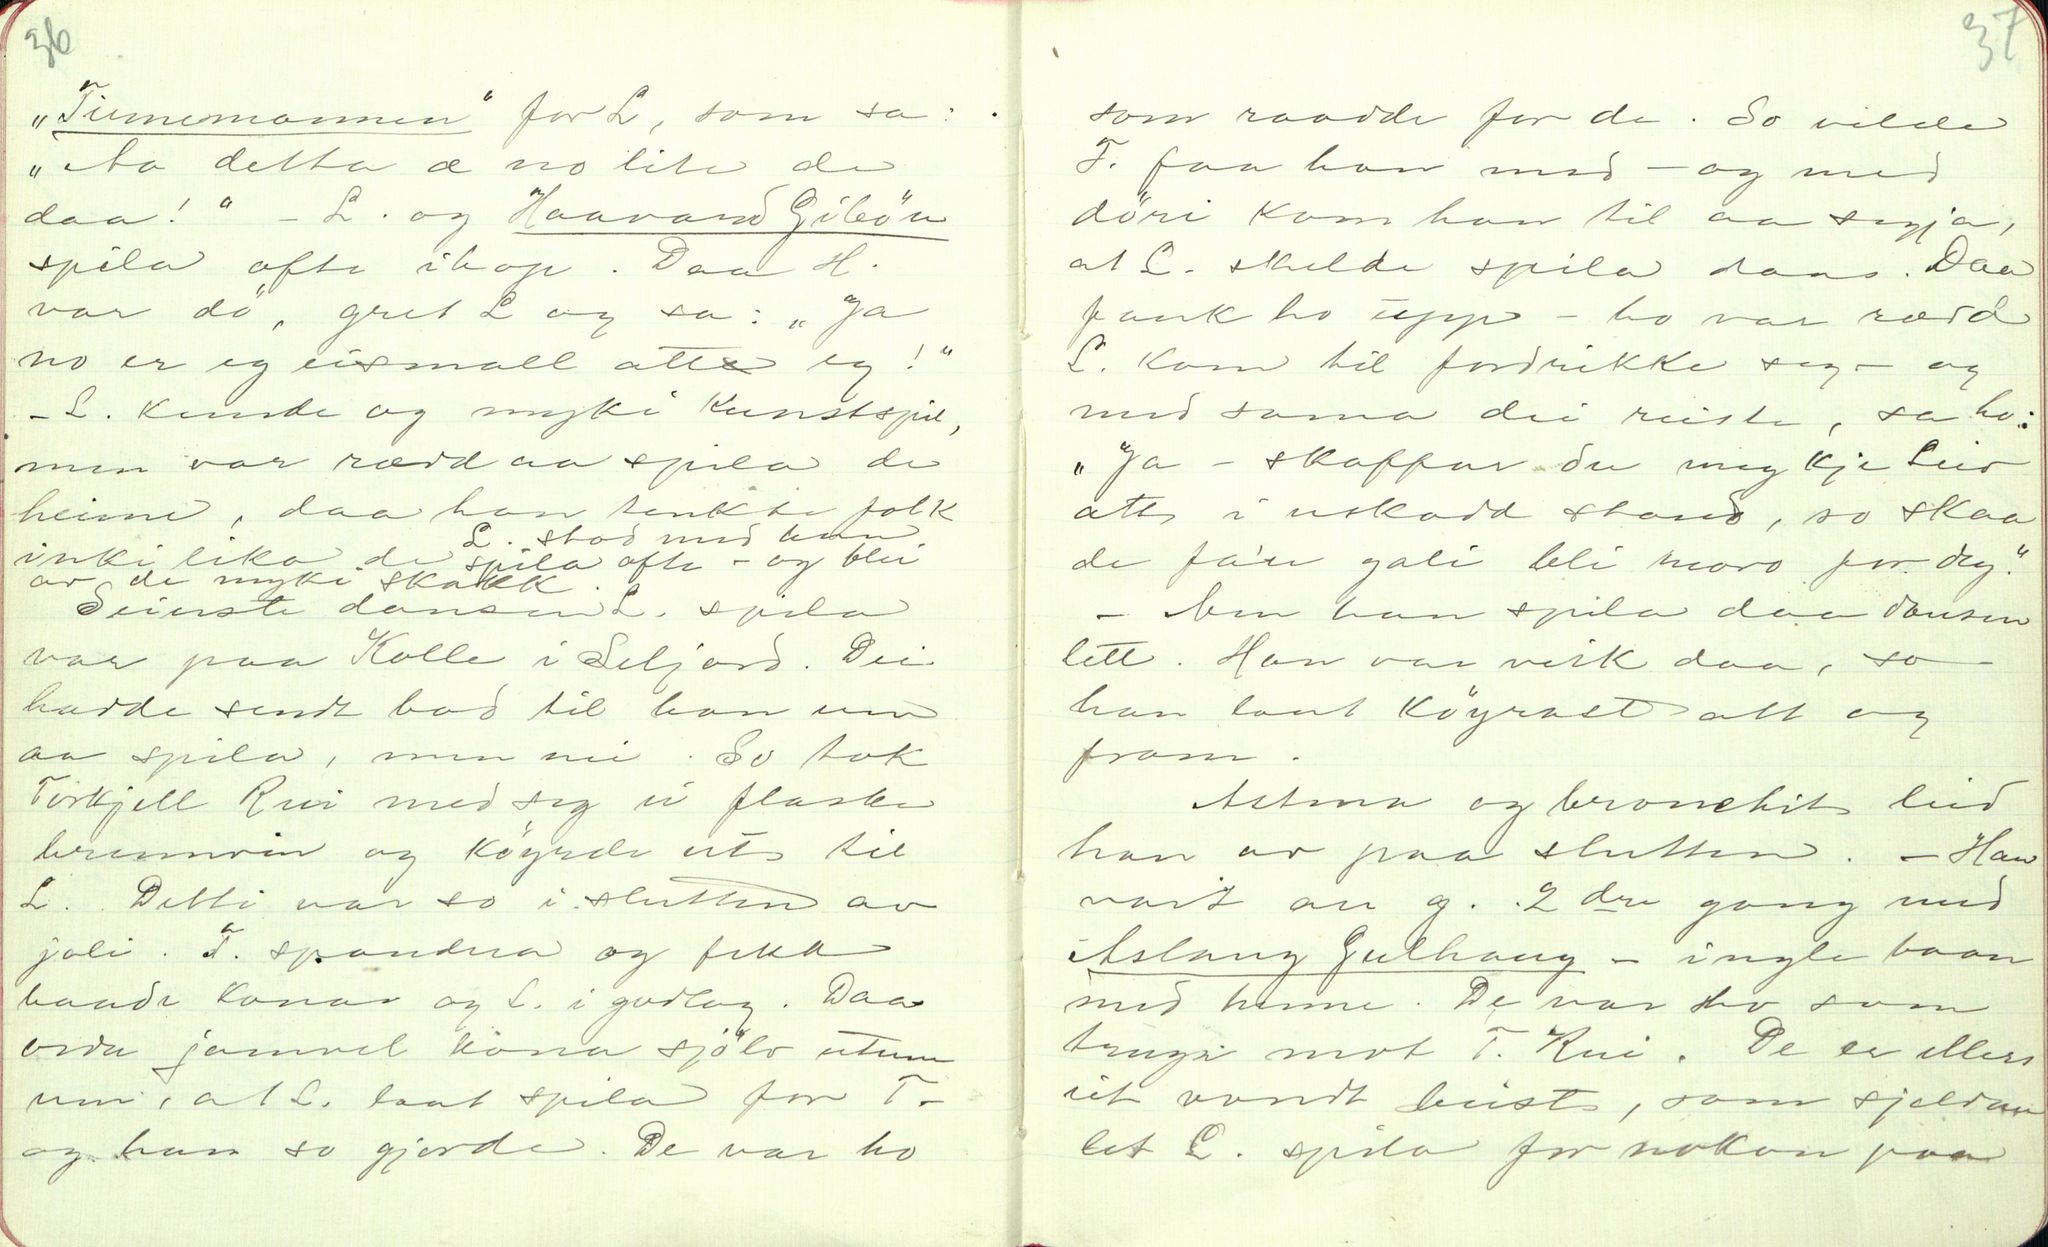 36
„Tinnemannen“ for L, som sa:
„Aa detta æ no lite de
daa!“ – L. og Haavard Gibøn
spila ofte ihop. Daa H.
var dö, gret L og sa: „Ja
no er eg eismall atte eg!“
– L. kunde og myki kunstspil,
men var rædd aa spila de
heime, daa han tenkte folk
inki lika de. L. stod med han
spila ofte – og blei
av de myki skakk.
Seinste dansen L. spila
var paa Kolle i Seljord. Dei
hadde sendt bod til han um
aa spila, men nei. So tok
Torkjell Rui med seg ei flaske
brennvin og köyrde ut til
L. Detti var so i slutten av
joli. T. spandera og fekk
baade kona og L. i godlag. Daa
orda jamvel kona sjölv utum
um, at L. laut spila for T. –
og han so gjorde. De var ho
37
som raadde for de. So vilde
T. faa han med – og med
döri kom han til aa segja,
at L. skulde spila dans. Daa
fauk ho upp – ho var rædd
L. kom til fordrikke seg – og
med sama dei reiste, sa ho:
„Ja – skaffar du meg kje Leiv
att i uskadd stand, so skaa
de fa'en gali bli moro for deg“.
– Men han spila daa dansen
lett. Han var veik daa, so
han laut köyrast att og
fram.
Astma og bronchit leid
han av paa slutten. – Han
vart an g. 2dre gang med
Aslaug Gulhaug – ingle baan
med henne. De var ho som
truga mot T. Rui. De er ellers
eit vondt beist, som sjeldan
let L. spila for nokon paa